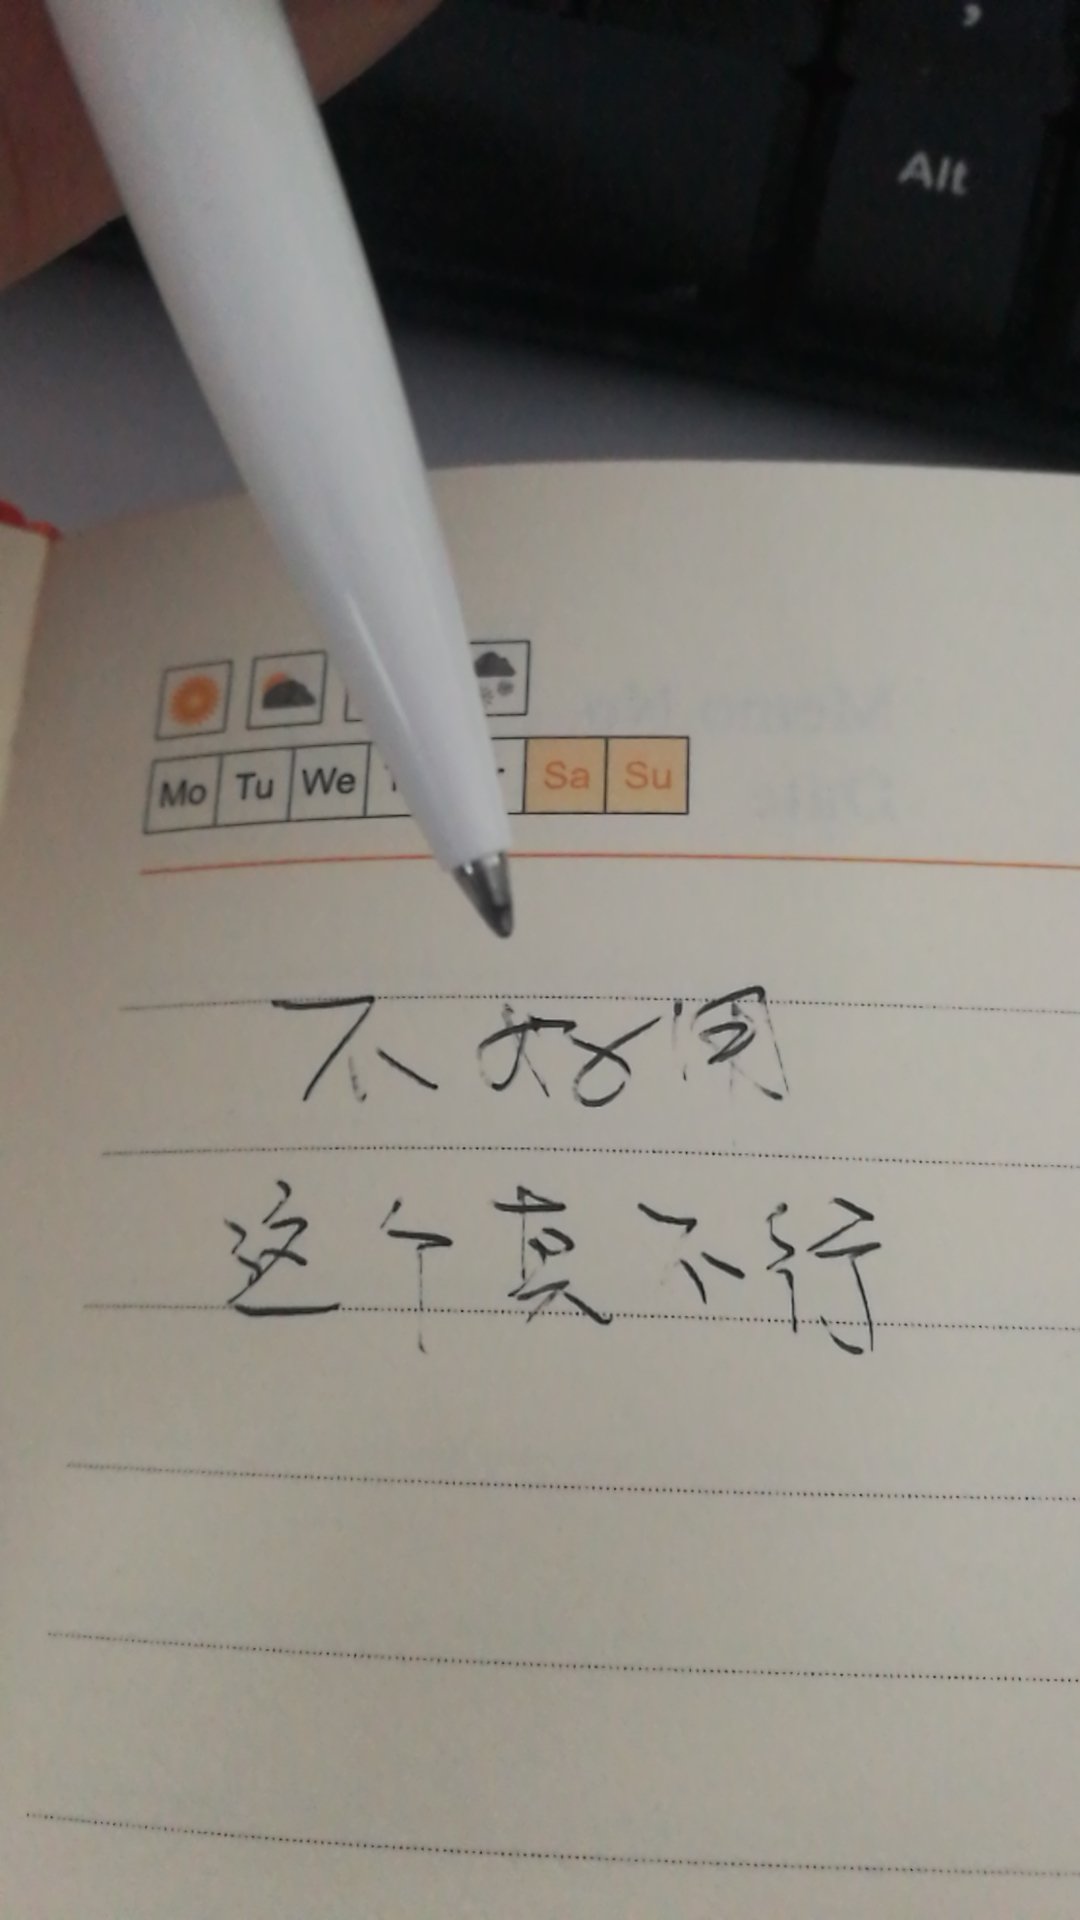 Alt
Mo Tu We Sa Su
不好用
这个真不行